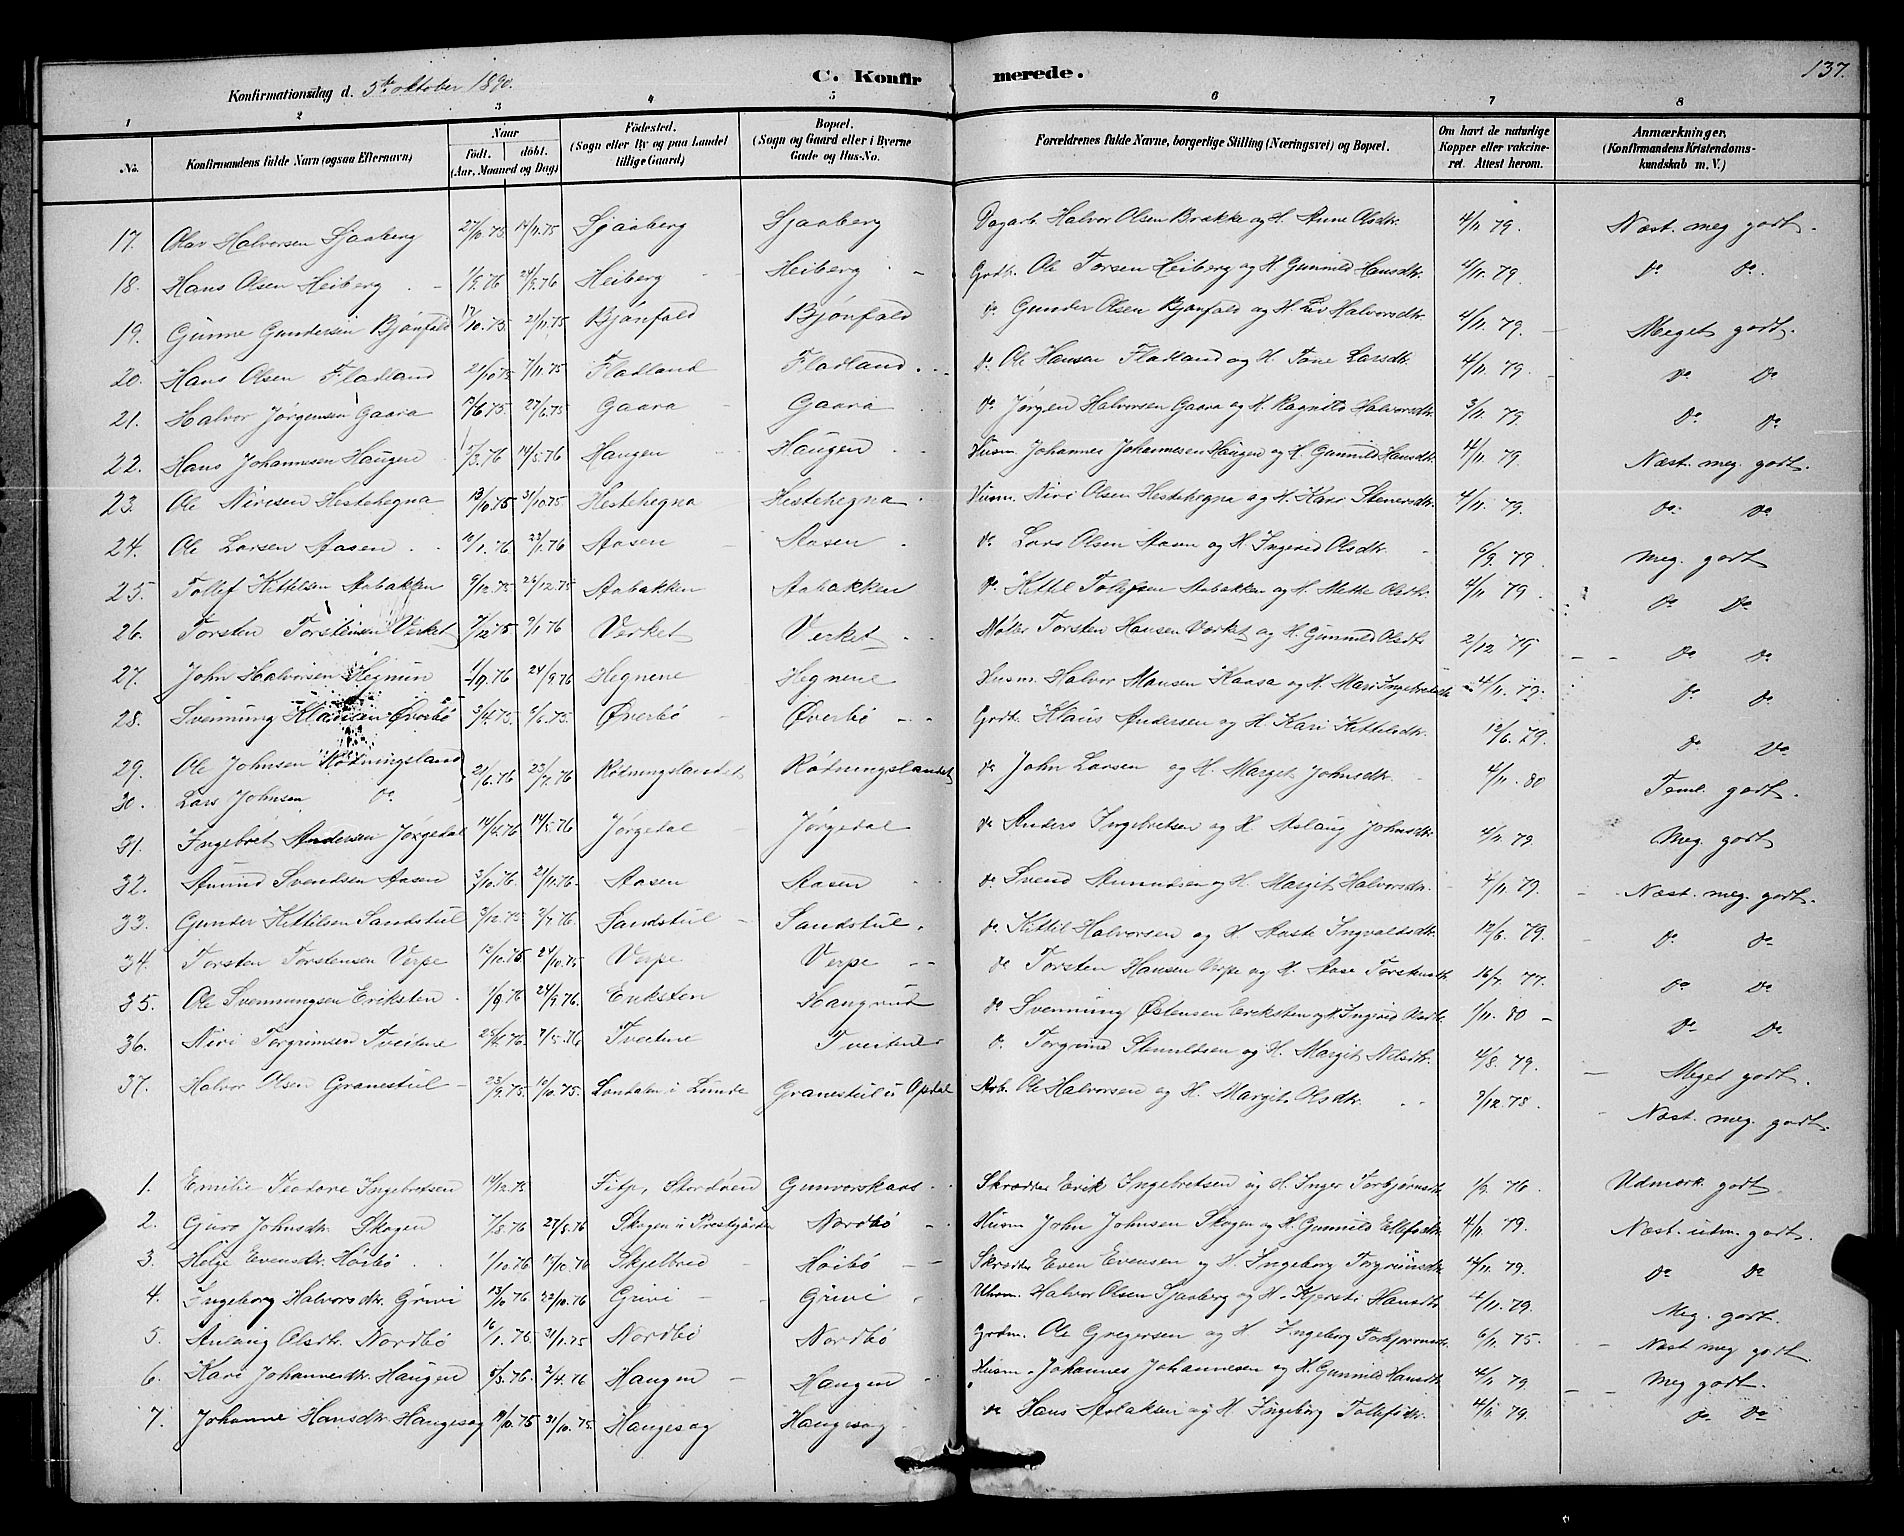 137.
Konfirmationsdag d. 5te oktober 1890.
C. Konfirmerede.
1 2 3 4 5 6 7 8
No. Konfirmandens fulde Navn (ogsaa Efternavn) Naar født. døbt. (Aar, Maaned og Dag) Fødested. (Sogn eller By og paa Landet tillige Gaard) Bopæl. (Sogn og Gaard eller i Byerne Gade og Hus-No. Forældrenes fulde Navne, borgerlige Stilling (Næringsvei) og Bopæl. Om havt de naturlige Kopper eller vakcineret. Attest herom. Anmærkninger, (Konfirmandens Kristendomskundskab m. V.)
17. Olav Halvorsen Sjaaberg 27/10.75 14/11.75 Sjaaberg Sjaaberg Dagarb. Halvor Olsen Brække og H. Anne Olsdtr. 4/11 79. Næst. meg godt.
18. Hans Olsen Heiberg 24/9.76 Heiberg Heiberg Grdb. Ole Torsen Heiberg og H. Gunnild Hansdtr. 4/11. 79. Do Do.
19. Gunne Gundersen Bjønfald 17/10.75 21/11.75 Bjønfald Bjønfald do Gunder Olsen Bjønfald og H. Liv Halvorsdtr. 4/11. 79. Meget godt.
20. Hans Olsen Fladland 21/10.75 7/11.75 Fladland Fladland do Ole Hansen Fladland og H. Tone Larsdtr. 4/11. 79. Do Do
21. Halvor Jørgensen Gaara 27/6.75 Gaara Gaara do Jørgen Halvorsen Gaara og H. Ragnild Halvorsdtr. 3/11. 79. Do Do
22. Hans Johannesen Haugen 14/5.76 Haugen Haugen Husm. Johannes Johannesen Haugen og H. Gunnild Hansdtr. 4/11. 79. Næst. meg. godt.
23. Ole Nirisen Hestehegna 13/10.75 31/10.75 Hestehegna Hestehegna Husm. Niri Olsen Hestehegna og H. Kari Stenersdtr. 4/11. 79. Do. Do.
24. Ole Larsen Aasen 10/1.76 23/1.76 Aasen Aasen do Lars Olsen Aasen og H. Ingerid Olsdtr. 6/9. 79. Meg. godt
25. Tollef Kittilsen Aabakken 9/12.75 26/12.75 Aabakken Aabakken do Kittil Tollefsen Aabakken og H. Mette Olsdtr. 4/11 79. Do Do
26. Torsten Torstensen Verket 7/12 75 9/1.76 Verket Verket Møller Torsten Hansen Værket og H. Gunnild Olsdtr 2/12 79 Do Do
27. John Halvorsen Hegnun 1/9.76 24/9.76 Hegnene Hegnene Husm. Halvor Hansen Kaasa og H. Mari Ingebretsdtr 4/11. 79. Do Do
28. Svennung Klausen Øverbø 3/4.75. 6/6.75. Øverbø Øverbø Grdb. Klaus Andersen og H. Kari Kittelsdtr. 12/6. 79. Do Do
29. Ole Johnsen Rødningsland 21/6.76 23/7.76 Rødningslandet Rødningslandet do John Larsen og H. Margit Johnsdtr. 4/11. 80 Teml. godt.
30. Lars Johnsen Do.
31. Ingebret Andersen Jørgedal 14/5.76 Jørgedal Jørgedal do Anders Ingebretsen og H. Aslaug Johnsdtr. 4/11. 79. Meg. godt
32. Amund Svendsen Aasen 3/10.76. 21/11.76. Aasen Aasen do Svend Amundsen og H. Margit Halvorsdtr. 4/11. 79. Næst. meg. godt.
33. Gunder Kittilsen Sandstul 3/12.75 2/7.76. Sandstul Sandstul. do Kittil Halvorsen og H. Aaste Ingvaldsdtr. 12/6. 79. Do. Do
34. Torsten Torstensen Verpe 12/10.75 24/10.75 Verpe Verpe do Torsten Hansen Verpe og H. Aase Torstensdtr. 16/7. 77. Do Do
35. Ole Svennungsen Eriksten 1/9 76 24/9.76. Eriksten Haugrud do Svennung Østensen Eriksten og H. Ingerid Olsdtr. 1/11. 80 Do. Do
36. Niri Torgrimsen Tveitene 7/5.76 Tveitene Tveitene do Torgrim Stenuldsen og H. Margit Nilsdtr. 4/8. 79. Meget godt.
37. Halvor Olsen Granestul 23/9.75. 10/10.75. Landalen i Lunde Granestul i Opdal Arb. Ole Halvorsen og H. Margit Olsdtr. 3/12.78. Næst. meg. godt.
1. Emilie Teodore Ingebretsen 14/12.75 Stordøen Gunvorskaas Skrædder Erik Ingebretsen og H. Inger Torbjørnsdtr 1/9. 76 Udmærk. godt
2. Guro Johnsdtr. Skogen 7/5.76 27/5.76 Skogen i Prestgjorden Nordbø Husm John Johnsen Skogen og H. Gunnild Ellefsdtr. 4/11. 79. Næst. udm. godt.
3. Helge Evensdtr. Høibø 1/10.76 17/12.76 Skjelbred Høibø Skrædder Even Evensen og H. Ingeborg Torgrimsdtr. 4/11. 79. Do Do
4. Ingeborg Halvorsdtr. Grivi 13/10 76 22/10.76 Grivi Grivi Husm. Halvor Olsen Sjaaberg og H. Kjersti Hansdtr. 4/11. 79. Meg. godt.
5. Anlaug Olsdtr. Nordbø 16/1.76. 31/1.75 Nordbø Nordbø Grdm. Ole Gregersen og H. Ingeborg Torbjørnsdtr. 6/11. 75. Næst meg godt.
6. Kari Johannesdtr. Haugen 5/3.76. 2/4.76 Haugen Haugen Husm. Johannes Johannesen og H. Gunnild Hansdtr. 4/11. 79. Meg godt.
7. Johanne Hansdtr. Haugesag 31/10.75. Haugesag Haugesag do Hans Aslaksen og H. Ingeborg Tollefsdtr. 4/11. 79. Do Do